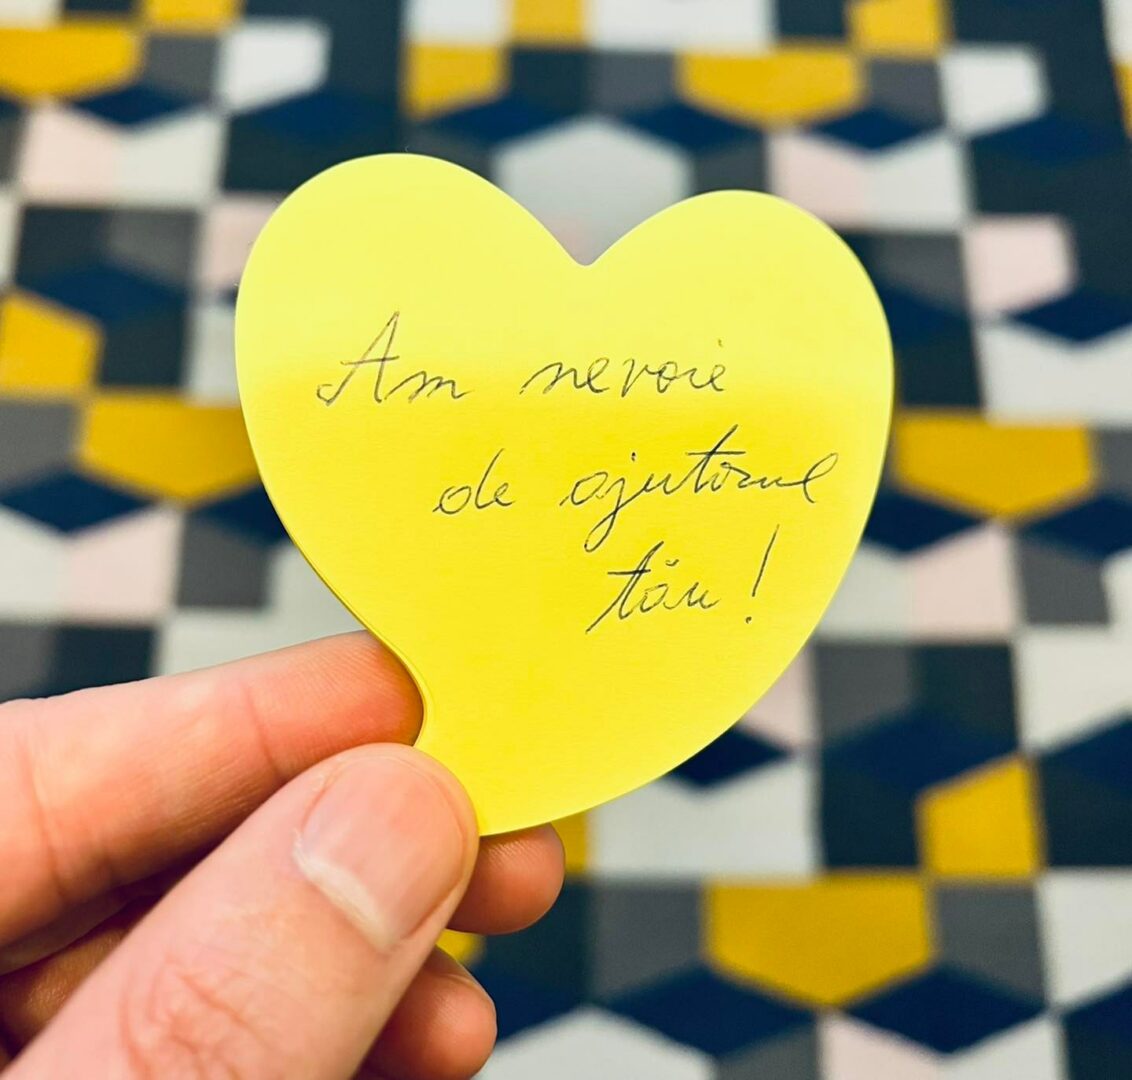 Am nevoie
de ajutorul
tău!